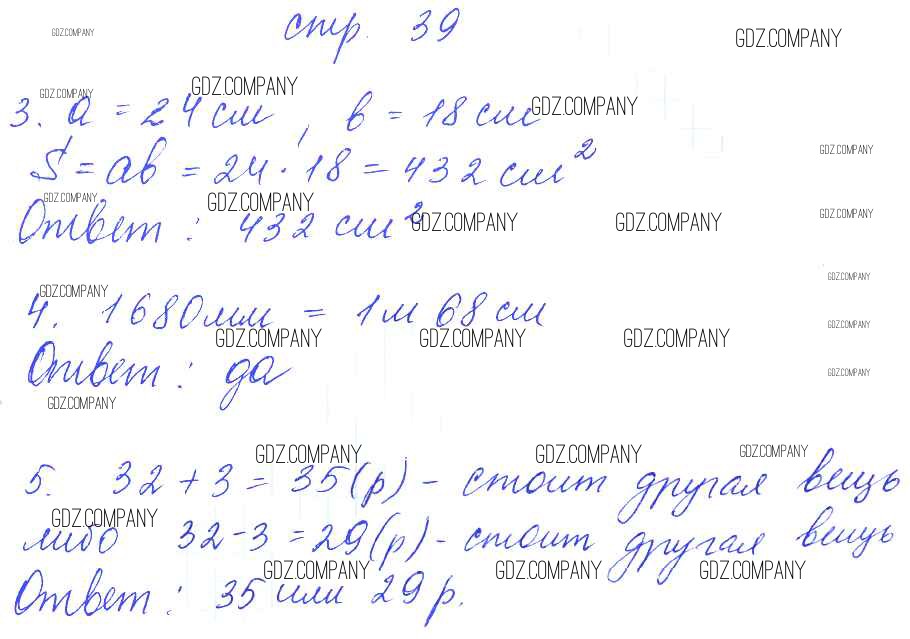 стр. 39
GDZ.COMPANY
GDZ.COMPANY
GDZ.COMPANY
GDZ.COMPANY
GDZ.COMPANY
3. a = 24 см, b = 18 см
S = ab = 24 · 18 = 432 см²
GDZ.COMPANY
GDZ.COMPANY
GDZ.COMPANY
Ответ : 432 см²
GDZ.COMPANY
GDZ.COMPANY
GDZ.COMPANY
GDZ.COMPANY
GDZ.COMPANY
4. 1680 мм = 1 м 68 см
GDZ.COMPANY
GDZ.COMPANY
GDZ.COMPANY
GDZ.COMPANY
Ответ : да
GDZ.COMPANY
GDZ.COMPANY
GDZ.COMPANY
GDZ.COMPANY
GDZ.COMPANY
5. 32 + 3 = 35 (р) - стоит другая вещь
GDZ.COMPANY
либо 32 - 3 = 29 (р) - стоит другая вещь
GDZ.COMPANY
GDZ.COMPANY
GDZ.COMPANY
Ответ : 35 или 29 р.